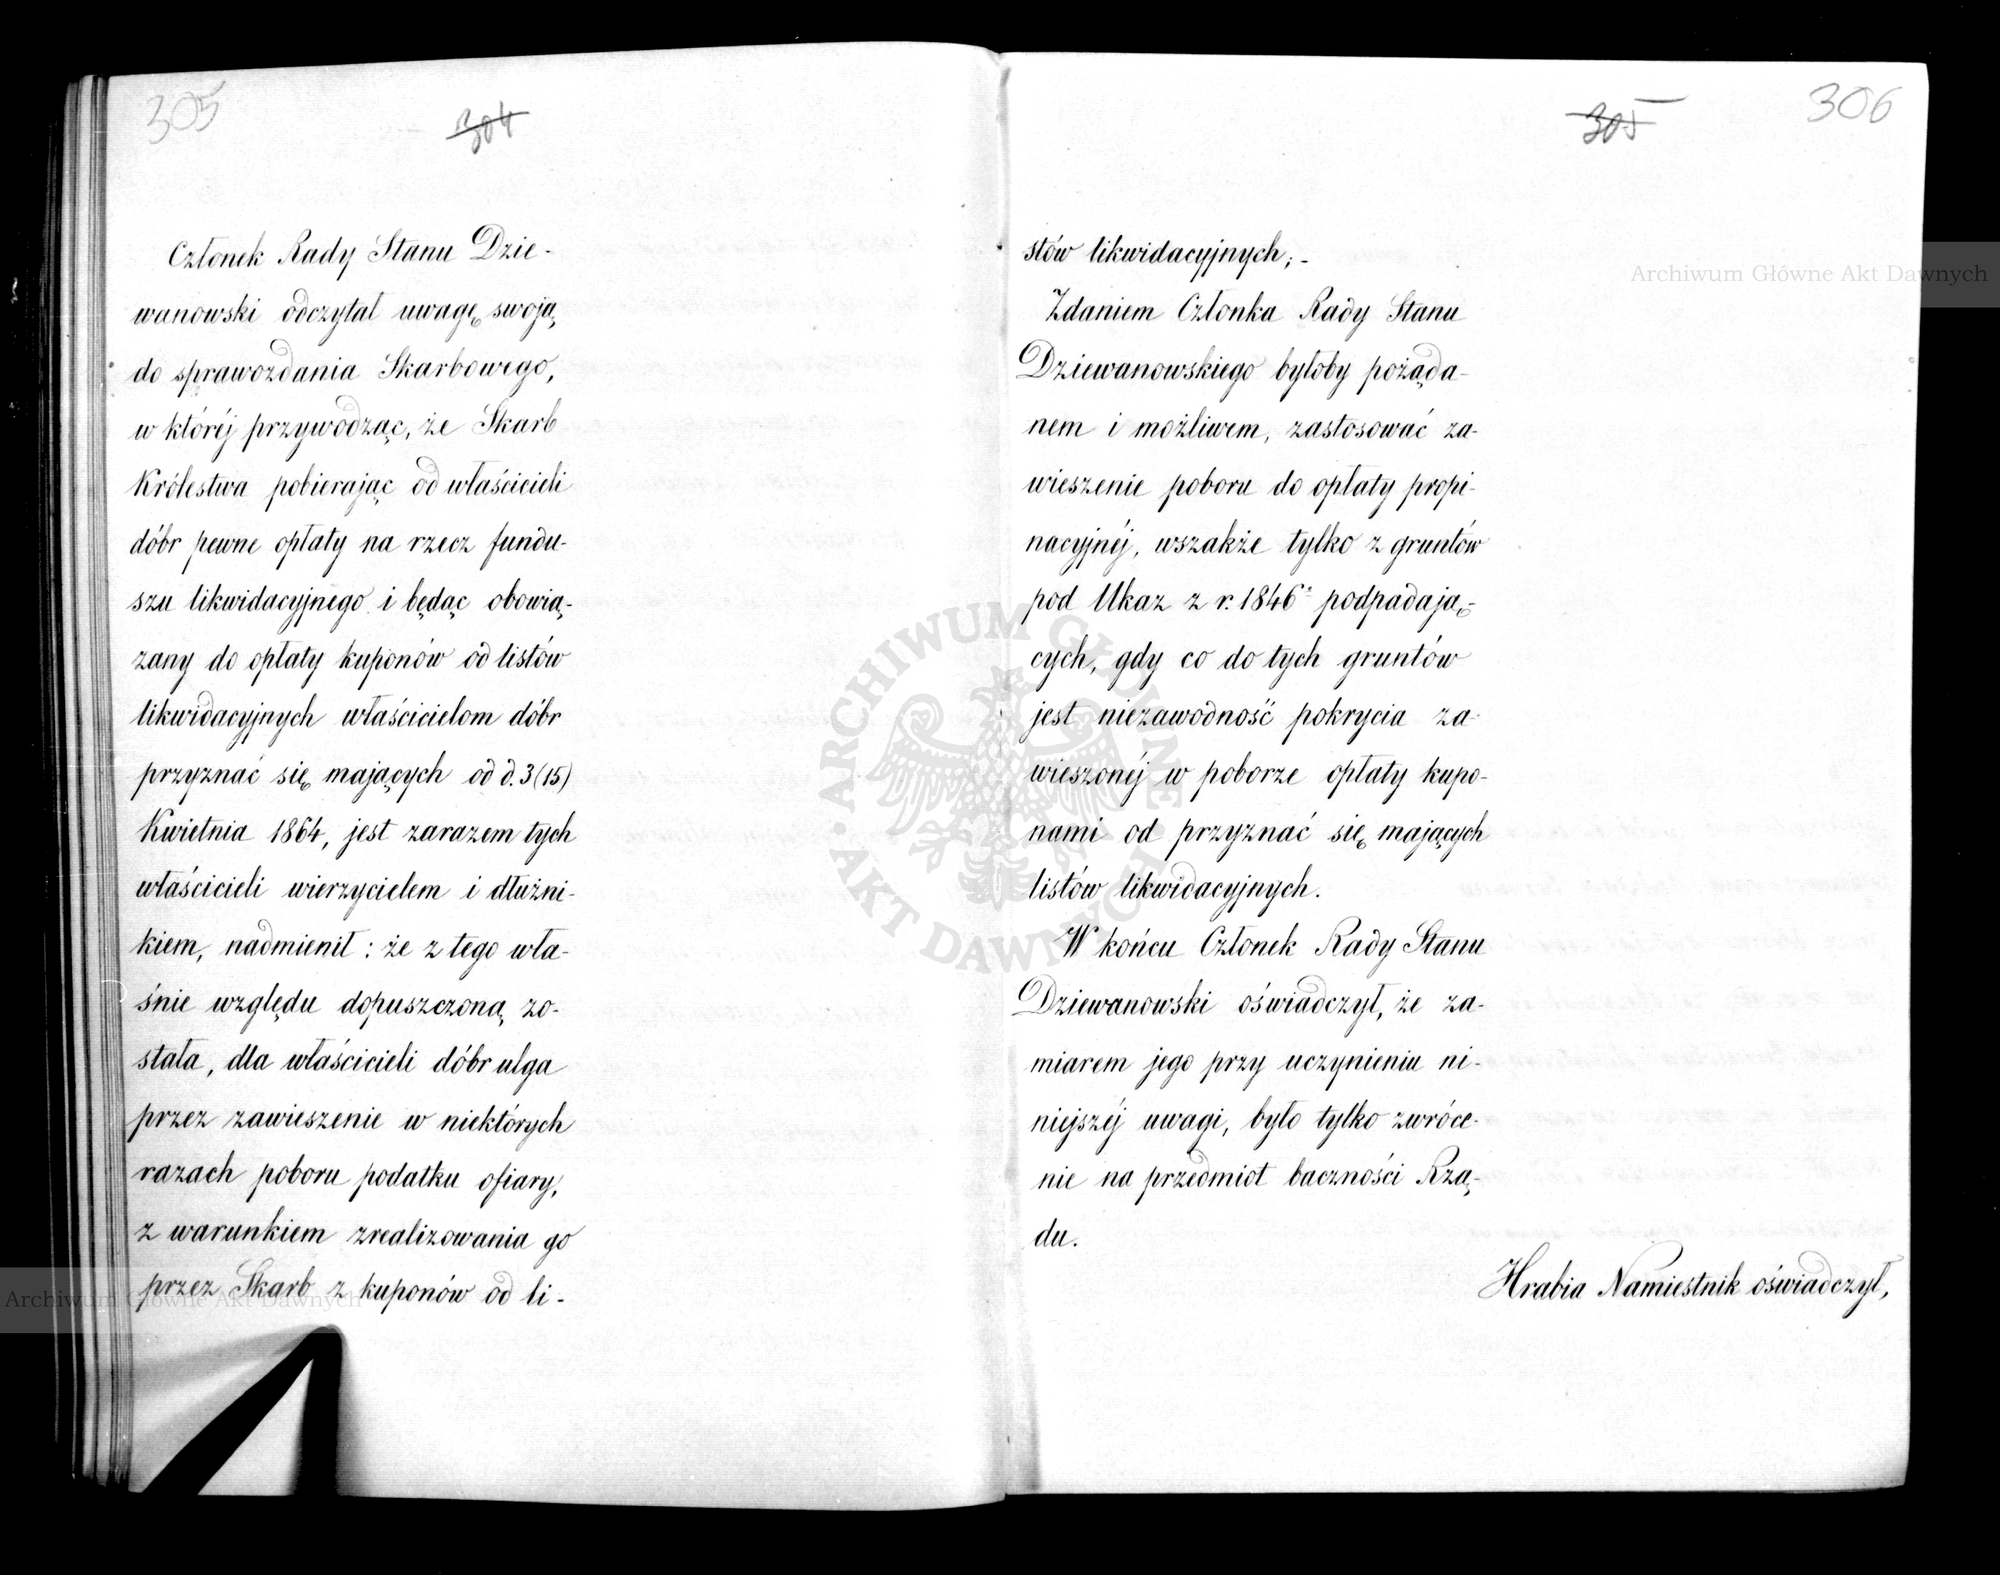 305
304
Członek Rady Stanu Dzie-
wanowski odczytał uwagę swoją
do sprawozdania Skarbowego,
w któréj przywodząc, że Skarb
Królestwa pobierając od właścicieli
dóbr pewne opłaty na rzecz fundu-
szu likwidacyjnego i będąc obowią-
zany do opłaty kuponów od listów
likwidacyjnych właścicielom dóbr
przyznać się mających od d. 3 (15)
Kwietnia 1864, jest zarazem tych
właścicieli wierzycielem i dłużni-
kiem, nadmienił: że z tego wła-
śnie względu dopuszczoną zo-
stała, dla właścicieli dóbr ulga
przez zawieszenie w niektórych
razach poboru podatku ofiary,
z warunkiem zrealizowania go
przez Skarb z kuponów od li-
Archiwum Główne Akt Dawnych
305
306
stów likwidacyjnych;-
Archiwum Główne Akt Dawnych
Zdaniem Członka Rady Stanu
Dziewanowskiego byłoby pożąda-
nem i możliwem, zastosować za-
wieszenie poboru do opłaty propi-
nacyjnéj, wszakże tylko z gruntów
pod Ukaz z r. 1846 podpadają-
cych, gdy co do tych gruntów
jest niezawodność pokrycia za-
wieszonéj w poborze opłaty kupo-
nami od przyznać się mających
listów likwidacyjnych.
W końcu Członek Rady Stanu
Dziewanowski oświadczył, że za-
miarem jego przy uczynieniu ni-
niejszéj uwagi, było tylko zwróce-
nie na przedmiot baczności Rzą-
du.
Hrabia Namiestnik oświadczył,
ARCHIWUM GŁÓWNE AKT DAWNYCH